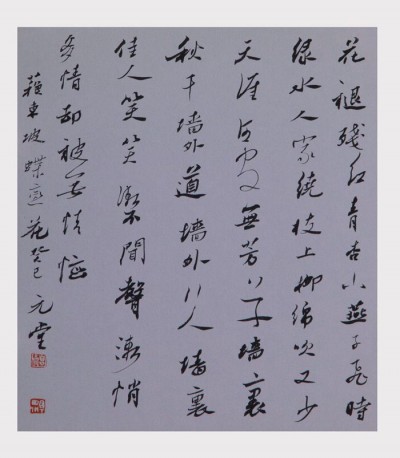 花褪残红青杏小燕子飛時
绿水人家绕枝上柳绵吹又少
天涯何處無芳草墙裏
秋千墙外道墙外行人墙裏
佳人笑笑漸不聞聲漸悄
多情却被无情惱
蘓東坡蝶戀花癸巳元堂